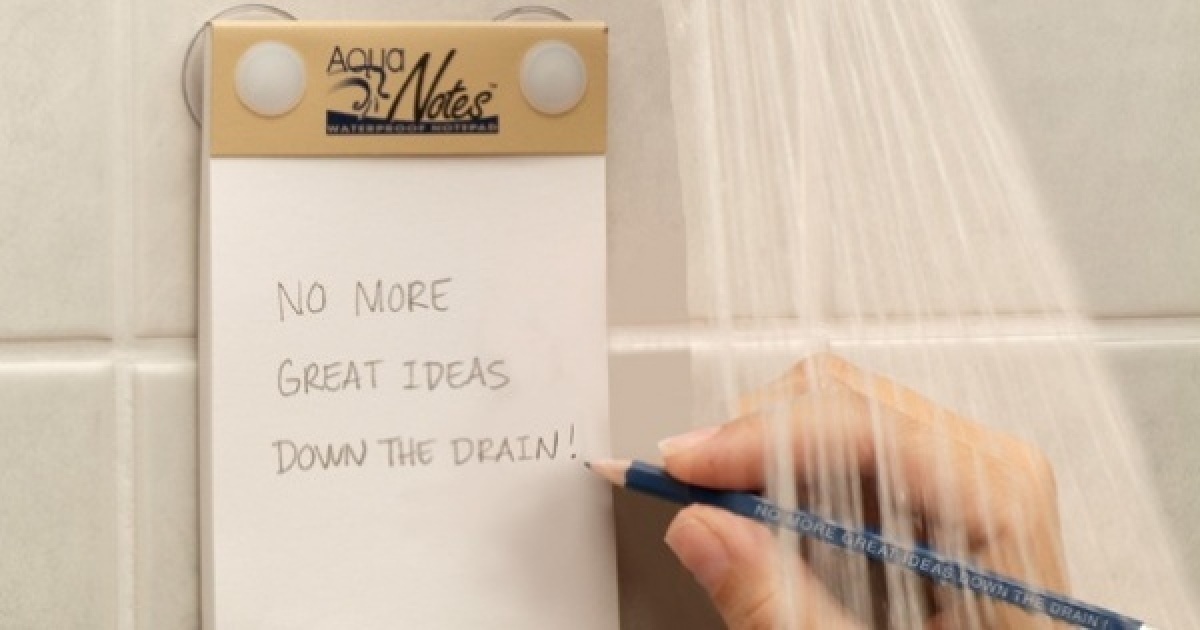 Aqua
Notes™
WATERPROOF NOTEPAD
NO MORE
GREAT IDEAS
DOWN THE DRAIN!
NO MORE GREAT IDEAS DOWN THE DRAIN!